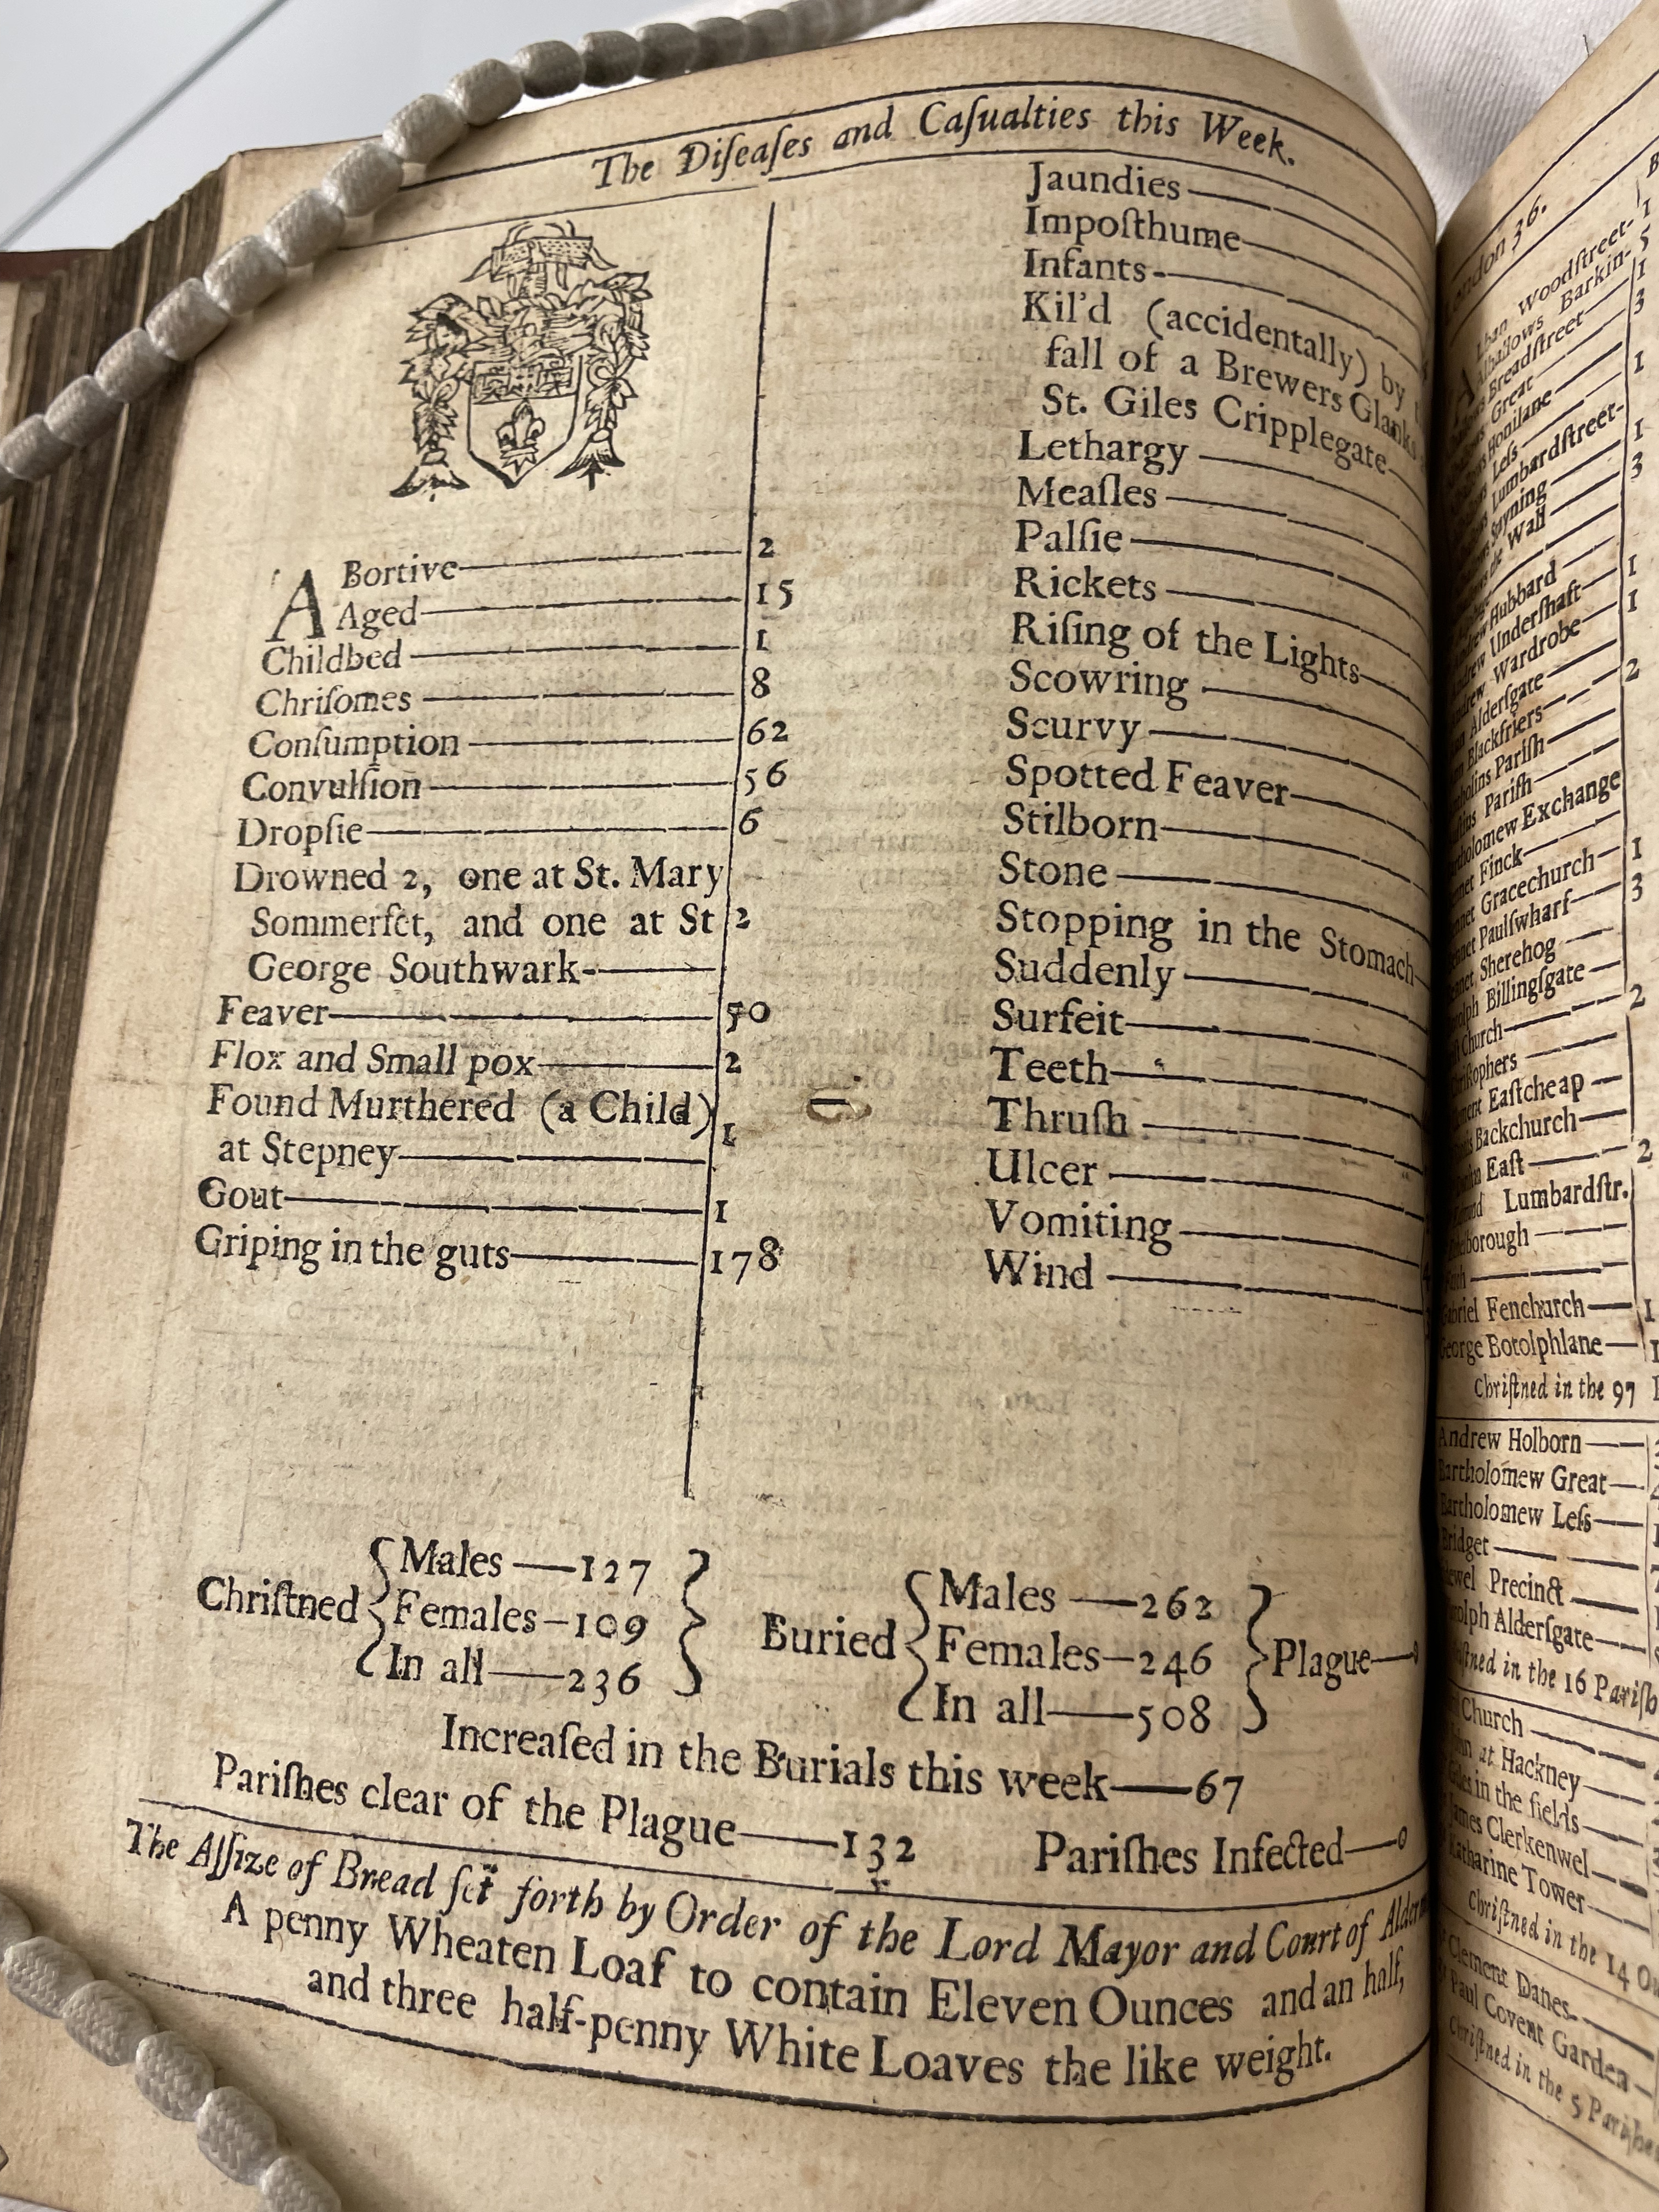 The Diſeaſes and Caſualties this Week.
ABortive 2
Aged 15
Childbed 1
Chriſomes 8
Conſumption 62
Convulſion 56
Dropſie 6
Drowned 2, one at St. Mary
Sommerſet, and one at St 2
George Southwark-
Feaver 50
Flox and Small pox 2
Found Murthered (a Child)
at Stepney 1
Gout 1
Griping in the guts 178
Jaundies
Impoſthume
Infants
Kil'd (accidentally) by
fall of a Brewers
St. Giles Cripplegate
Lethargy
Meaſles
Palſie
Rickets
Riſing of the Lights
Scowring
Scurvy
Spotted Feaver
Stilborn
Stone
Stopping in the Stomach
Suddenly
Surfeit
Teeth
Thruſh
Ulcer
Vomiting
Wind
Chriſtned
Males—127
Females—109
In all—236
Buried
Males—262
Females—246
In all—508
Plague—0
Increaſed in the Burials this week—67
Pariſhes clear of the Plague—132 Pariſhes Infected—0
The Aſſize of Bread ſet forth by Order of the Lord Mayor and Court of
A penny Wheaten Loaf to contain Eleven Ounces and an half,
and three half-penny White Loaves the like weight.
36.
Woodſtreet-
Barkin- 5
Breadſtreet 1
Great 3
Honilane
Leſs 1
Lumbardſtreet-
Wall 3
Hubbard
Underſhaft 1
Wardrobe 1
Alderſgate
Blackfriers 2
Pariſh
Pariſh
Exchange
Finck
Gracechurch 1
Paulſwharf 3
Sherehog
Billingſgate
Church 2
Eaſtcheap
Backchurch
Eaſt 2
Lumbardſtr.
Fenchurch 1
George Botolphlane 1
Chriſtned in the 97
Andrew Holborn
Bartholomew Great
Bartholomew Leſs
Bridget
Precinct
Alderſgate
in the 16 Pariſh
Church
at Hackney
in the fields
James Clerkenwel
Katharine Tower
Chriſtned in the 14
Clement Danes
Paul Covent Garden
Chriſtned in the 5